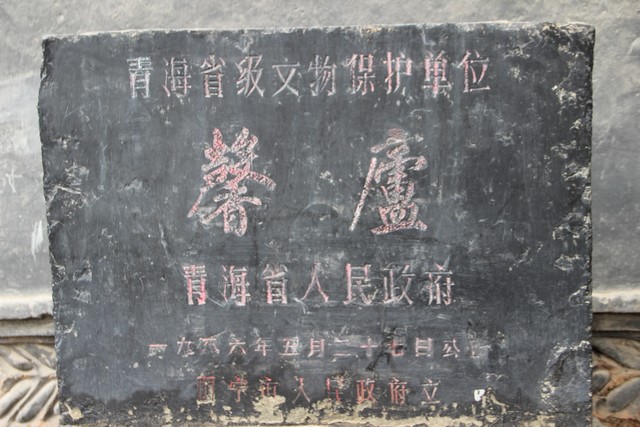 青海省级文物保护单位
馨廬
青海省人民政府
一九八六年五月二十七日公布
西宁市人民政府立